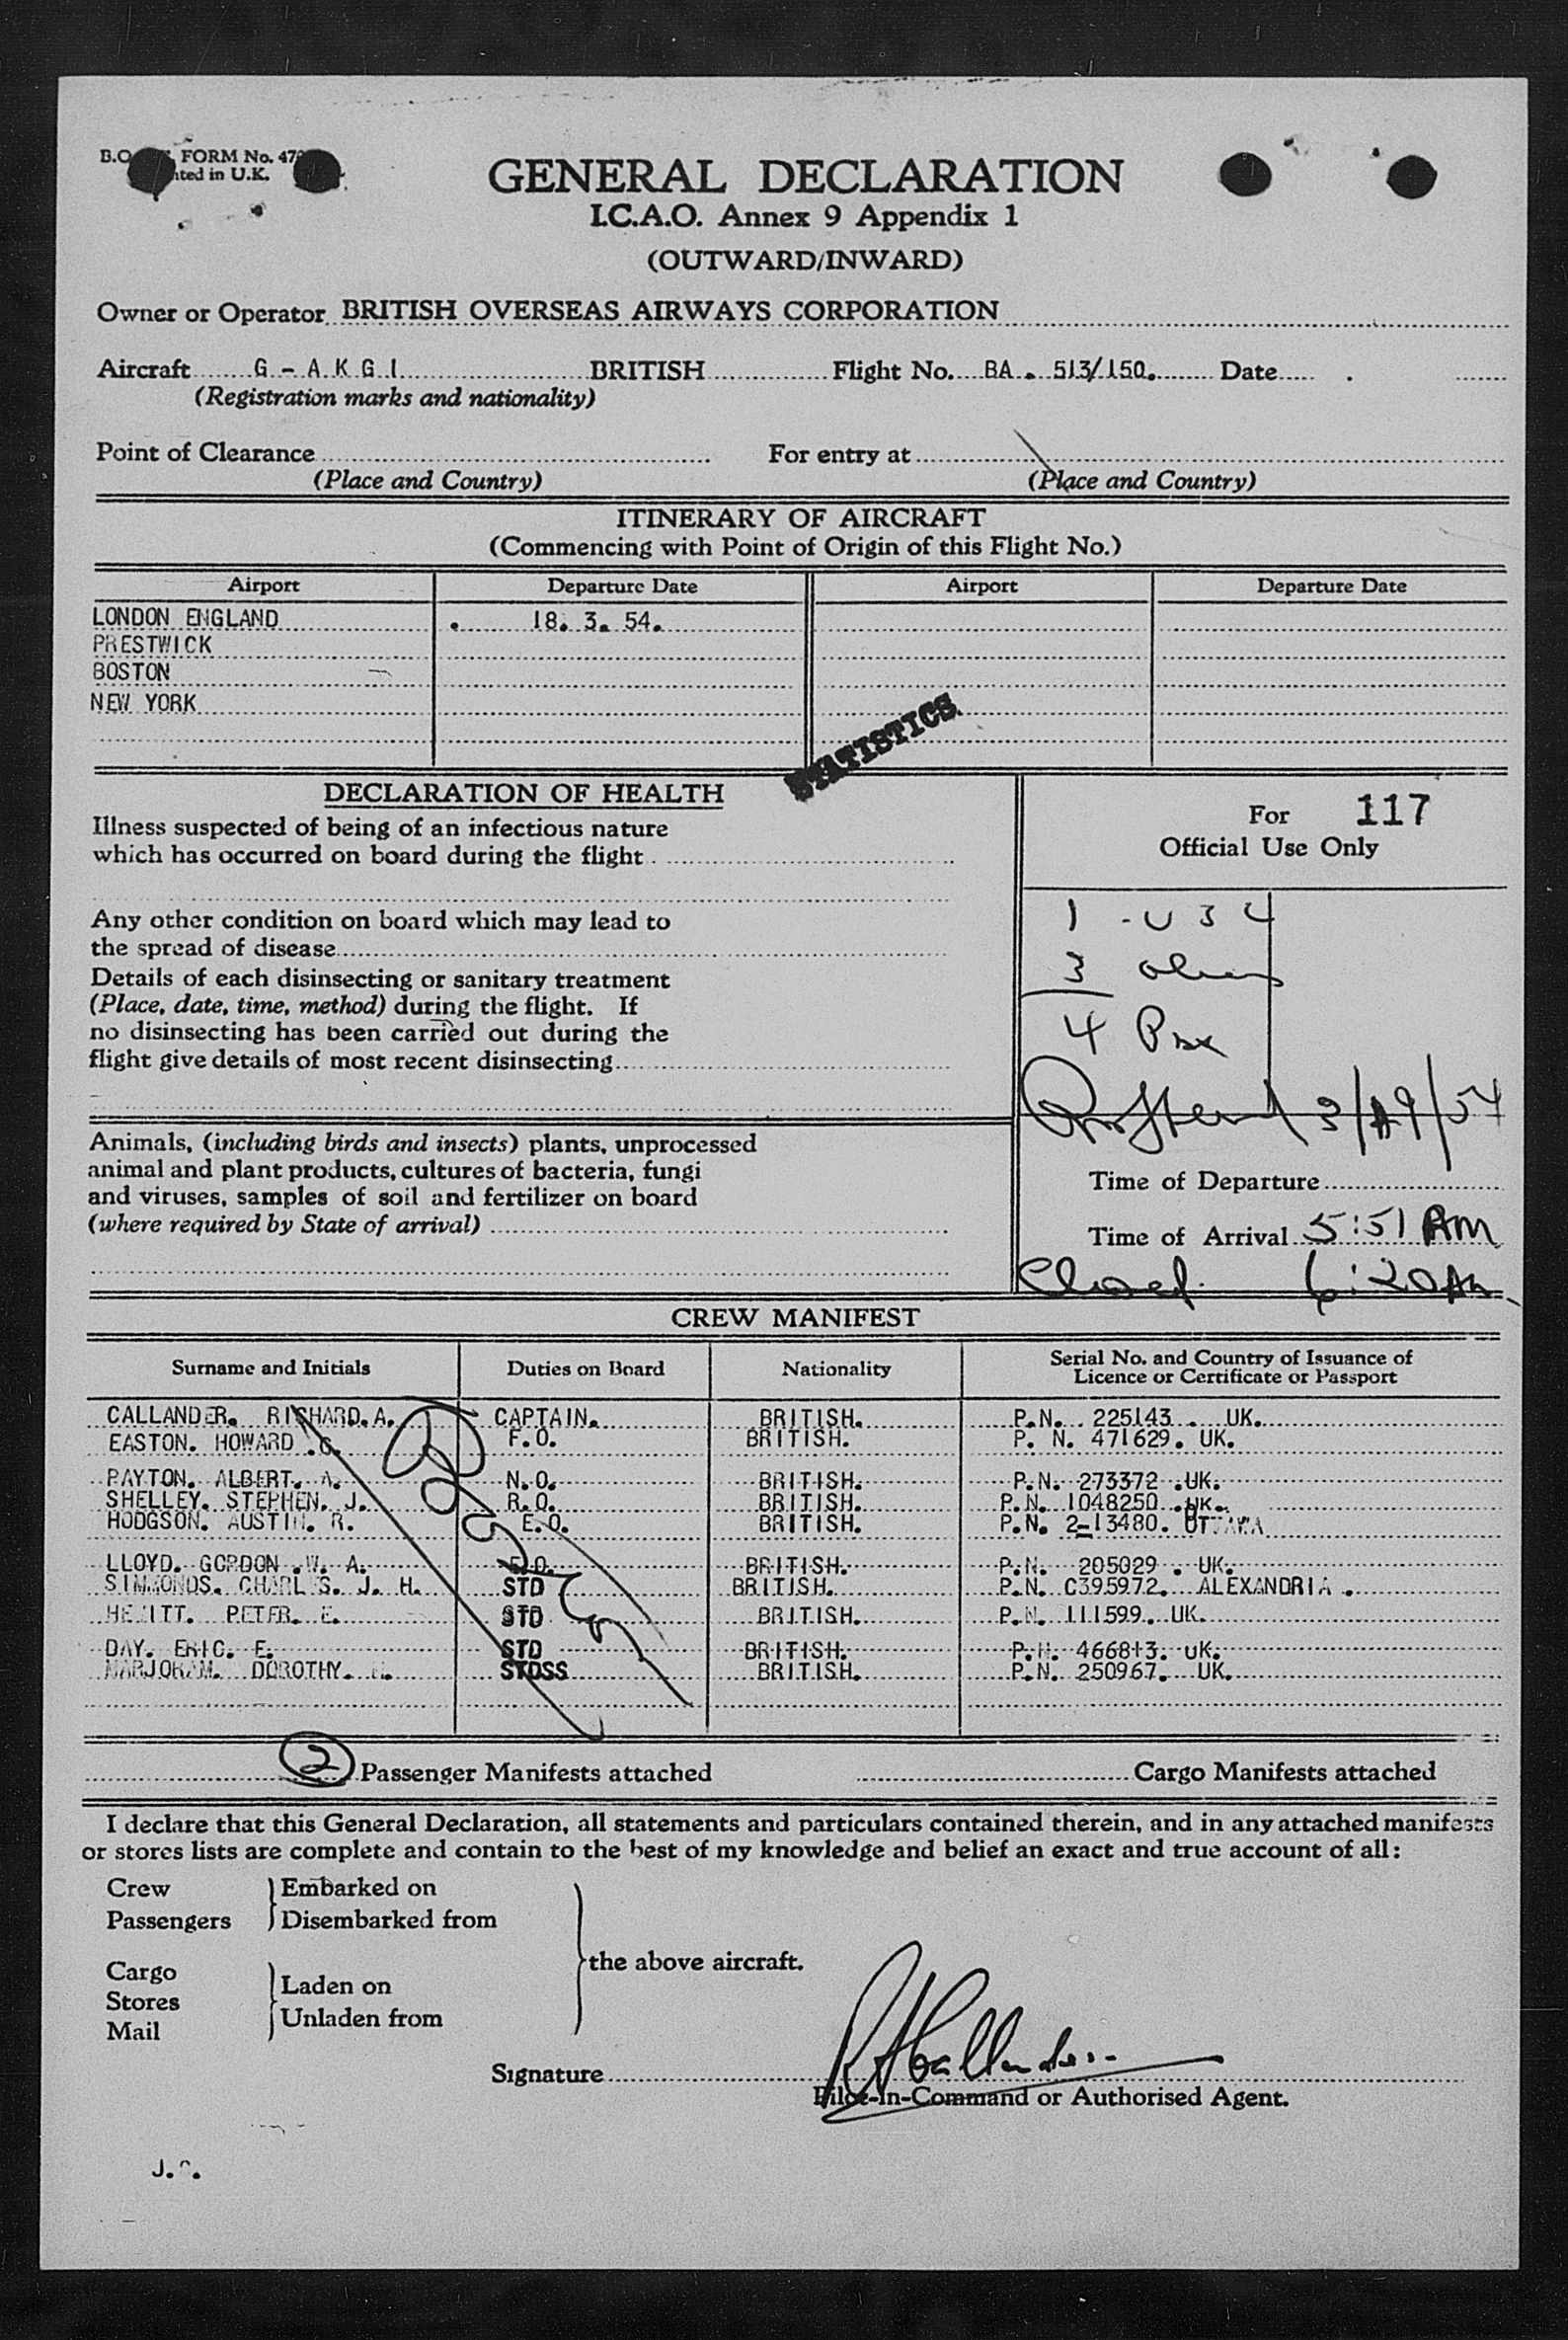 FORM No.
in U.K.
GENERAL DECLARATION
I.C.A.O. Annex 9 Appendix 1
(OUTWARD/INWARD)
Owner or Operator BRITISH OVERSEAS AIRWAYS CORPORATION
Aircraft G - A K G I BRITISH Flight No. BA . 513/150. Date
(Registration marks and nationality)
Point of Clearance For entry at
(Place and Country) (Place and Country)
ITINERARY OF AIRCRAFT
(Commencing with Point of Origin of this Flight No.)
Airport Departure Date Airport Departure Date
LONDON ENGLAND 18. 3. 54.
PRESTWICK
BOSTON
NEW YORK
STATISTICS
DECLARATION OF HEALTH
Illness suspected of being of an infectious nature
which has occurred on board during the flight
Any other condition on board which may lead to
the spread of disease
Details of each disinsecting or sanitary treatment
(Place, date, time, method) during the flight. If
no disinsecting has been carried out during the
flight give details of most recent disinsecting
Animals, (including birds and insects) plants, unprocessed
animal and plant products, cultures of bacteria, fungi
and viruses, samples of soil and fertilizer on board
(where required by State of arrival)
For 117
Official Use Only
1
3
4
3/19/54
Time of Departure
Time of Arrival 5:51 AM
Closed 6:20 AM
CREW MANIFEST
Surname and Initials Duties on Board Nationality Serial No. and Country of Issuance of
Licence or Certificate or Passport
CALLANDER. RICHARD. A. CAPTAIN. BRITISH. P.N. 225143 . UK.
EASTON. HOWARD F.O. BRITISH. P. N. 471629. UK.
PAYTON. ALBERT. A. N.O. BRITISH. P.N. 273372 .UK.
SHELLEY. STEPHEN. J. R.O. BRITISH. P.N. 1048250 .UK.
HODGSON. AUSTIN. R. E.O. BRITISH. P.N. 2-13480. OTTAWA
LLOYD. GORDON .W. A. E.O. BRITISH. P.N. 205029 . UK.
SIMMONDS. CHARLES. J. H. STD BRITISH. P.N. C395972. ALEXANDRIA .
HEWITT. PETER. E. STD BRITISH. P.N. 111599. UK.
DAY. ERIC. E. STD BRITISH. P.N. 466813. UK.
MARJORAM. DOROTHY. STDSS BRITISH. P.N. 250967. UK.
2 Passenger Manifests attached Cargo Manifests attached
I declare that this General Declaration, all statements and particulars contained therein, and in any attached manifests
or stores lists are complete and contain to the best of my knowledge and belief an exact and true account of all:
Crew Embarked on
Passengers Disembarked from
the above aircraft.
Cargo
Stores Laden on
Mail Unladen from
Signature RACallander
Pilot-in-Command or Authorised Agent.